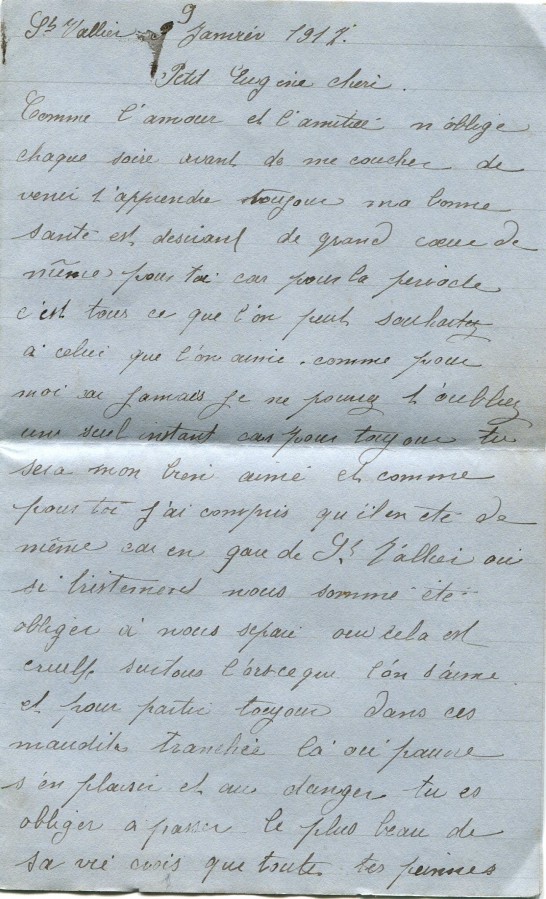 St Vallier 9 Janvier 1917.
Petit Eugène chéri.
Comme l'amour et l'amitié n'oblige
chaque soire avant de me coucher de
venir t'apprendre toujour ma bonne
santé est desirant de grand cœur de
même pour toi car pour la periode
c'est tous ce que l'on peut souhaitez
à celui que l'on aime. comme pour
moi jamais je ne pourez t'oubliez
une seul instant car pour toujour tu
sera mon bien aimé et comme
pour toi j'ai compris qu'il en été de
même car en gare de St Vallier où
si tristement nous somme été
obliger à nous separé oui cela est
cruelle surtous l'orsceque l'on s'aime
et pour partir toujour dans ces
maudite tranchée là où pauvre
s'en plaisir et au danger tu es
obliger a passer le plus beau de
sa vie crois que toute tes peinnes